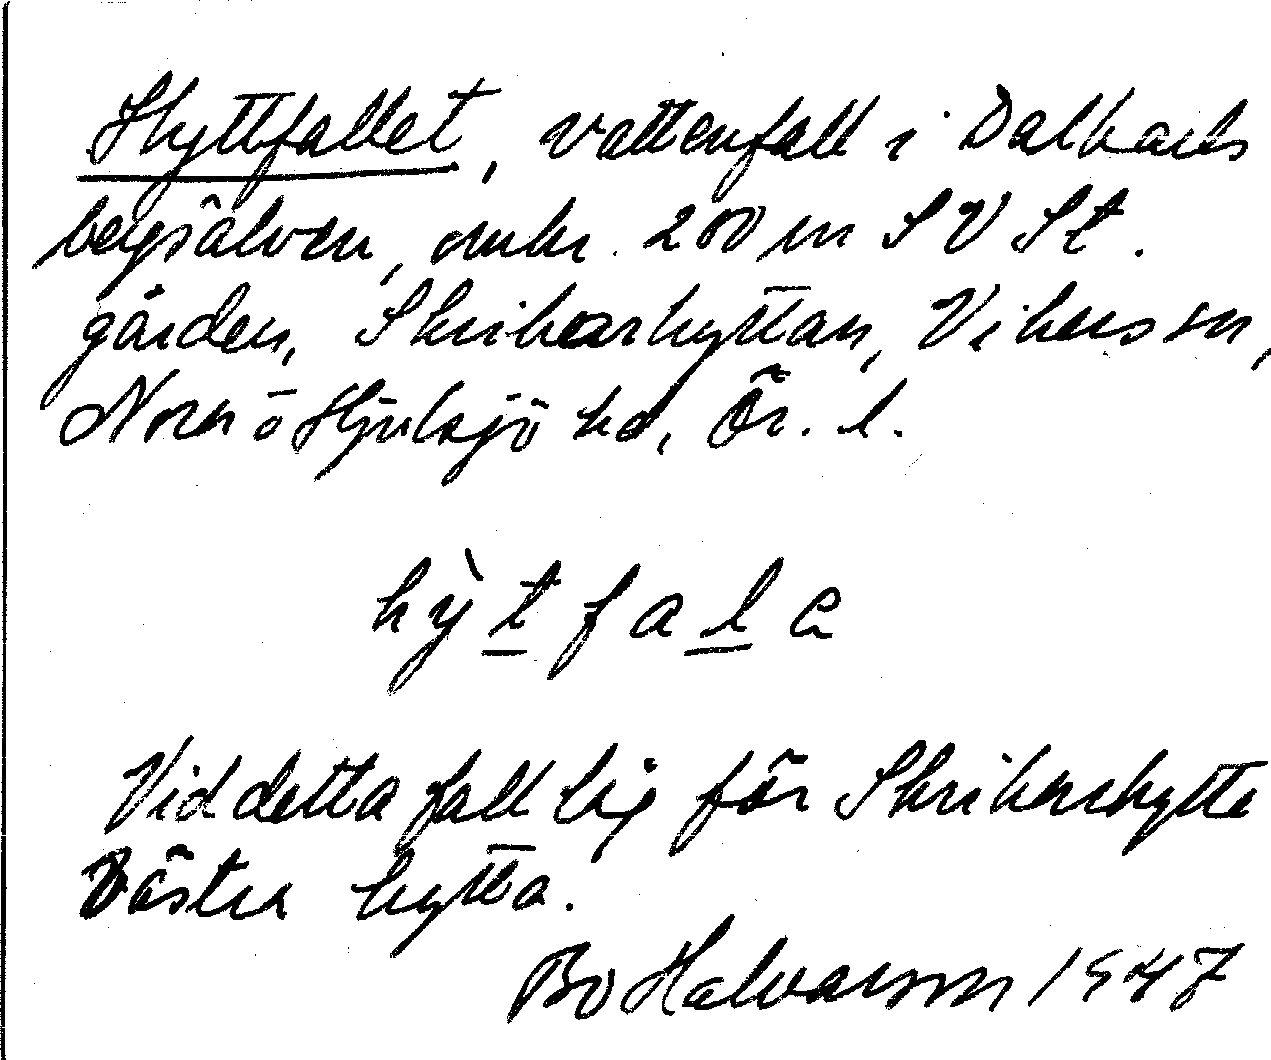 Hyttfallet, vattenfall i Dalkarls
bergsälven, omkr. 200 m SV St.
gården, Skrikarhyttan, Vikers sn,
Nora o Hjulsjö hd, Ör. l.
hỳtfala
Vid detta fall låg förr Skrikarehytte
Västra hytta.
Bo Halvarson 1947